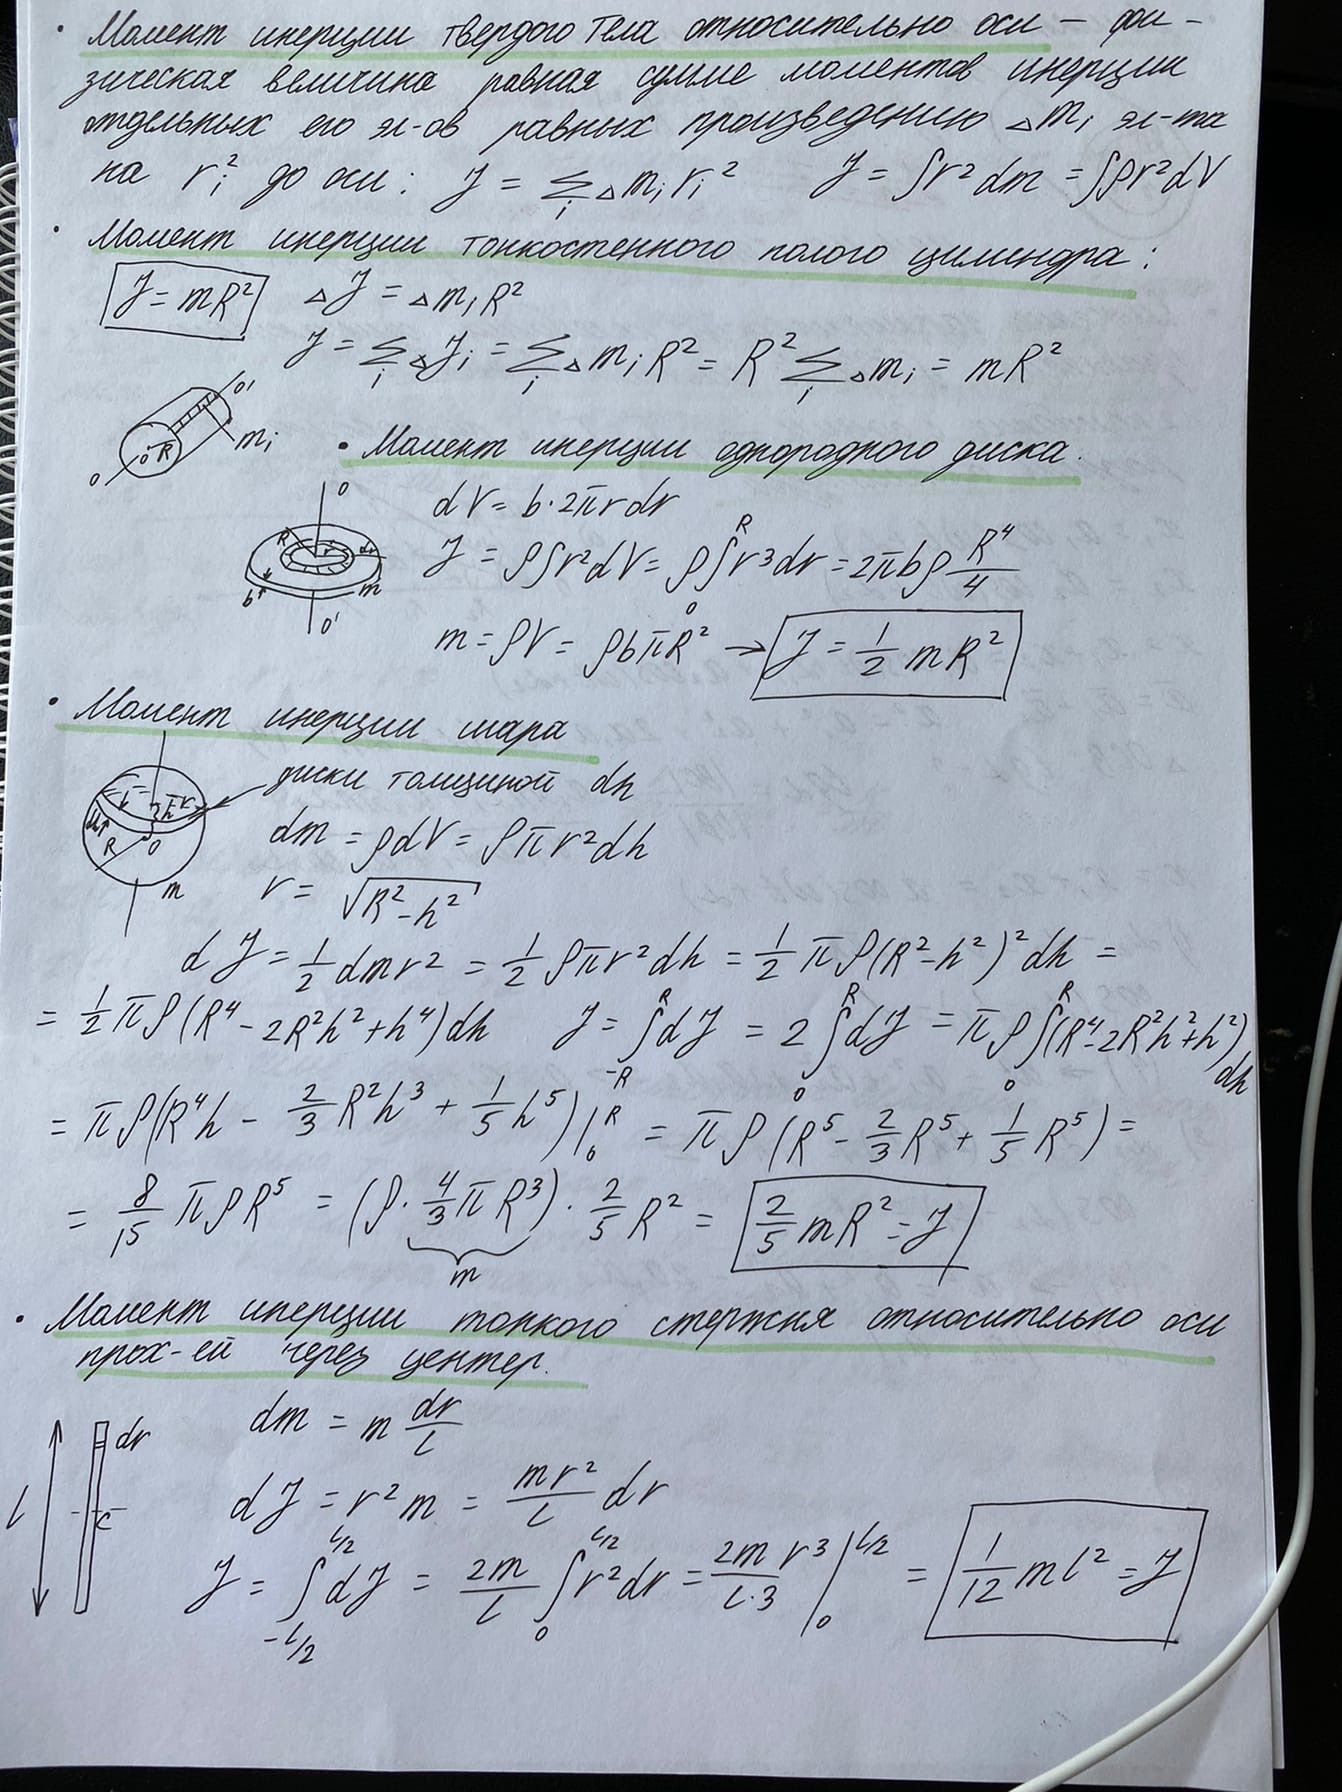 · Момент инерции твердого тела относительно оси – фи-
зическая величина равная сумме моментов инерции
отдельных его эл-ов равных произведению Δm_i эл-та
на r_i² до оси: J = Σ_i Δm_i r_i²   J = ∫r² dm = ∫ρr² dV
· Момент инерции тонкостенного полого цилиндра:
J = mR²   ΔJ = Δm_i R²
J = Σ_i ΔJ_i = Σ_i Δm_i R² = R² Σ_i Δm_i = mR²
O'
R
O
m_i
O
· Момент инерции однородного диска.
O
R
r
dr
b
m
O'
dV = b·2πrdr
J = ρ∫r²dV = ρ∫₀ᴿ r³dr = 2πbρ R⁴/4
m = ρV = ρbπR² → J = 1/2 mR²
· Момент инерции шара
диски толщиной dh
r
h
dh
R
O
m
dm = ρdV = ρπr²dh
r = √(R²-h²)
dJ = 1/2 dmr² = 1/2 ρπr²dh = 1/2 πρ(R²-h²)²dh =
= 1/2 πρ(R⁴ - 2R²h² + h⁴)dh   J = ∫₋ᴿᴿ dJ = 2∫₀ᴿ dJ = πρ∫₀ᴿ(R⁴-2R²h²+h²)
dh
= πρ(R⁴h - 2/3 R²h³ + 1/5 h⁵)|₀ᴿ = πρ(R⁵ - 2/3 R⁵ + 1/5 R⁵) =
= 8/15 πρR⁵ = (ρ · 4/3 πR³) · 2/5 R² = 2/5 mR² = J
m
· Момент инерции тонкого стержня относительно оси
прох-ей через центер.
dr
l
c
dm = m dr/l
dJ = r²m = mr²/l dr
J = ∫_{-l/2}^{l/2} dJ = 2m/l ∫₀^{l/2} r²dr = 2m r³/l·3 |₀^{l/2} = 1/12 ml² = J